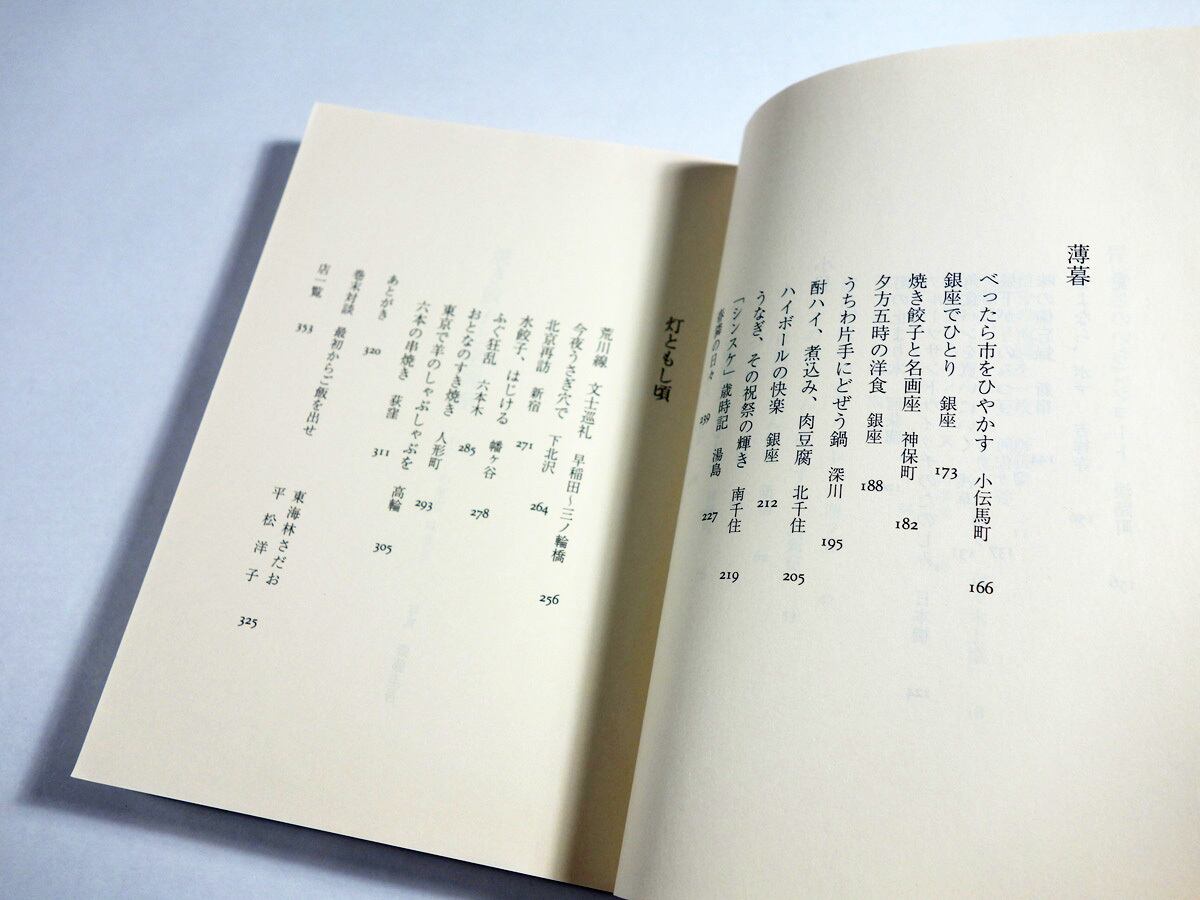 薄暮
べったら市をひやかす 小伝馬町 166
銀座でひとり 銀座 173
焼き餃子と名画座 神保町 182
夕方五時の洋食 銀座 188
うちわ片手にどぜう鍋 深川 195
酎ハイ、煮込み、肉豆腐 北千住 205
ハイボールの快楽 銀座 212
うなぎ、その祝祭の輝き 南千住 219
「シンスケ」歳時記 湯島 227
春隣の日々 239
灯ともし頃
荒川線 文士巡礼 早稲田〜三ノ輪橋 256
今夜うさぎ穴で 下北沢 264
北京再訪 新宿 271
水餃子、はじける 幡ヶ谷 278
ふぐ狂乱 六本木 285
おとなのすき焼き 人形町 293
東京で羊のしゃぶしゃぶを 高輪 305
六本の串焼き 荻窪 311
あとがき 320
巻末対談 最初からご飯を出せ
東海林さだお
平松洋子 325
店一覧 353